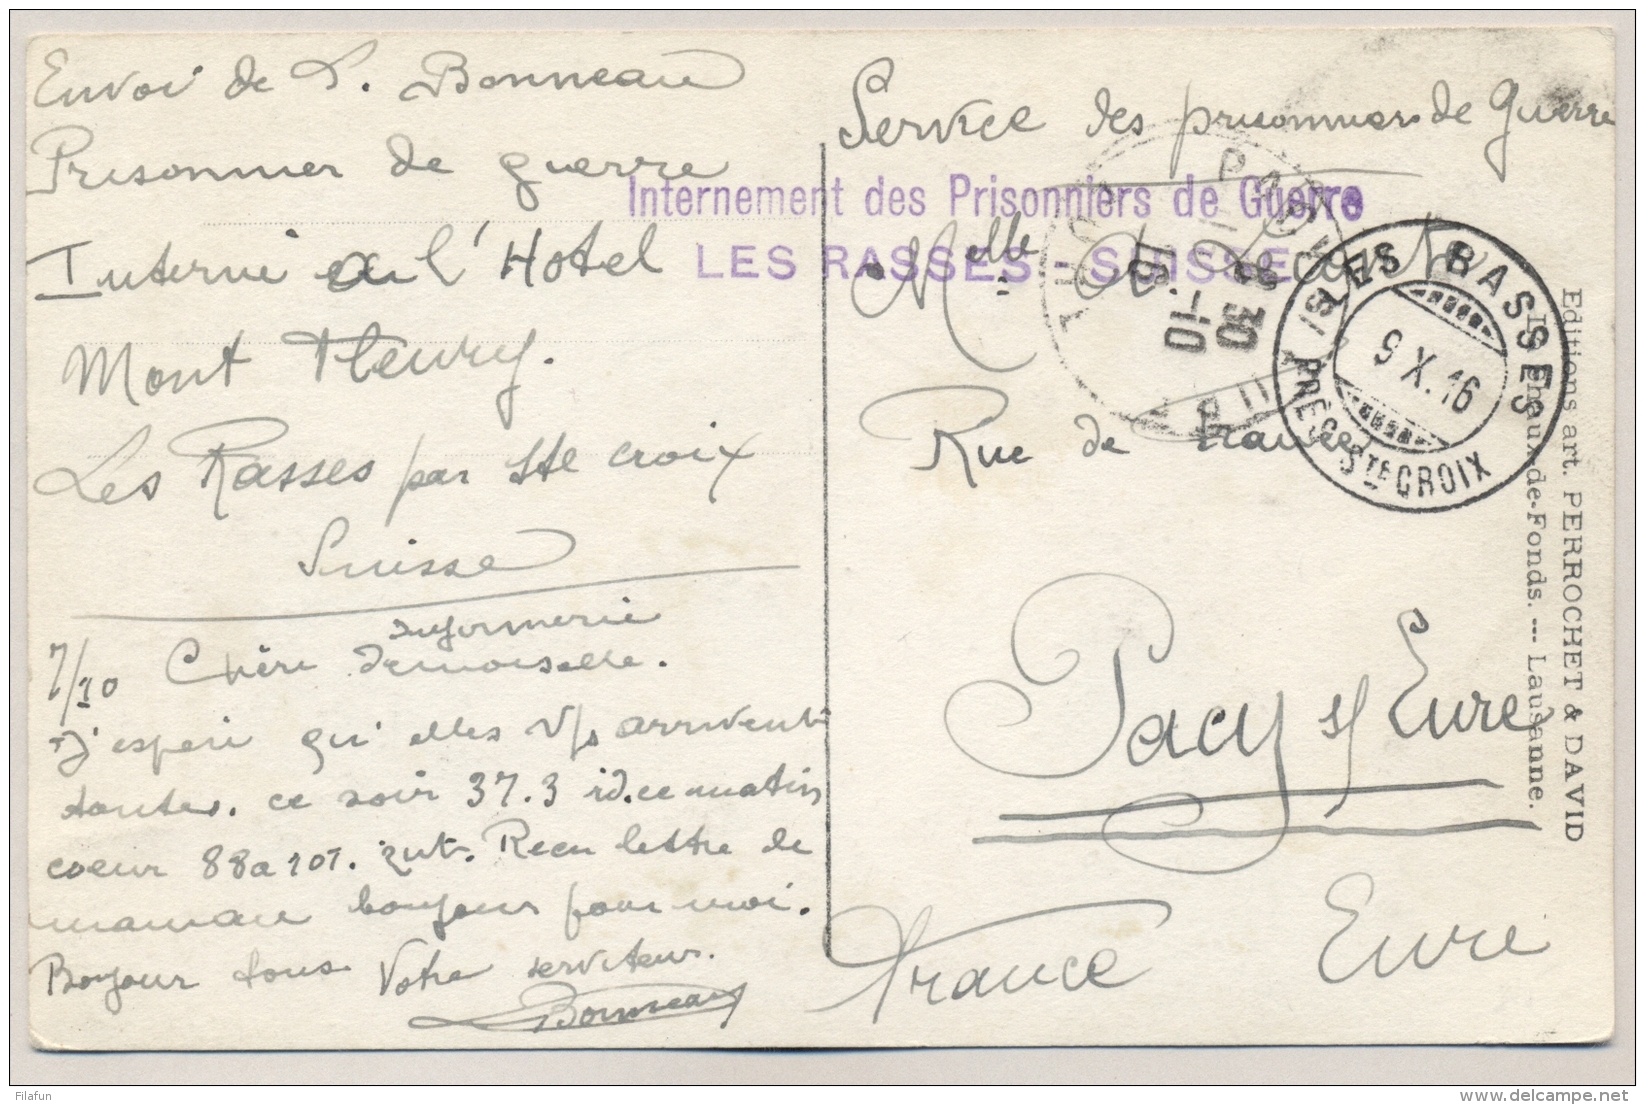 Envoi de L. Bonneau
Prisonnier de guerre
Interné à l'Hotel
Mont Fleury.
Les Rasses par Ste croix
Suisse
7/10 Chère demoiselle.
J'espère qu'elles vs arrivent
toutes. ce soir 37.3 id. ce matin
coeur 88 a 101. zut. Recu lettre de
maman bonjour pour moi.
Bonjour tous Votre serviteur.
Bonneau
Service des prisonniers de Guerre
Internement des Prisonniers de Guerre
LES RASSES - SUISSE
Melle
Rue de France
Pacy s/ Eure
France Eure
LES RASSES
9 X. 16
PRÈS STE CROIX
Editions art. PERROCHET & DAVID
La Chaux-de-Fonds. --- Lausanne.
Filafun
www.delcampe.net